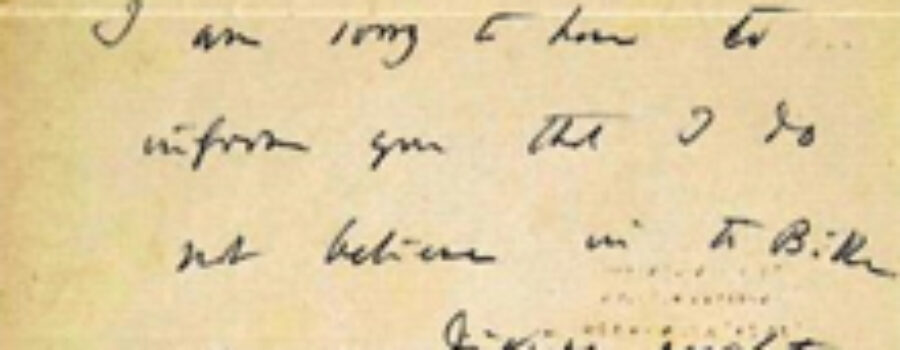 I am sorry to have to
inform you that I do
not believe in the Bible